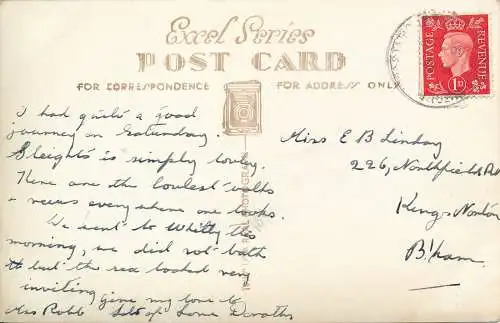 Excel Series
POST CARD
FOR CORRESPONDENCE
FOR ADDRESS ONLY
POSTAGE REVENUE
1D
I had quite a good
journey on Saturday.
Sleights is simply lovely.
Here are the loveliest walks
& views everywhere one looks.
We went to Whitby this
morning, we did not bath
but the sea looked very
inviting give my love to
Miss Robb Lots of Love Dorothy
Miss E B Lindsay
226, Northfield Rd
Kings Norton
B'ham.
REAL PHOTOGRAPH